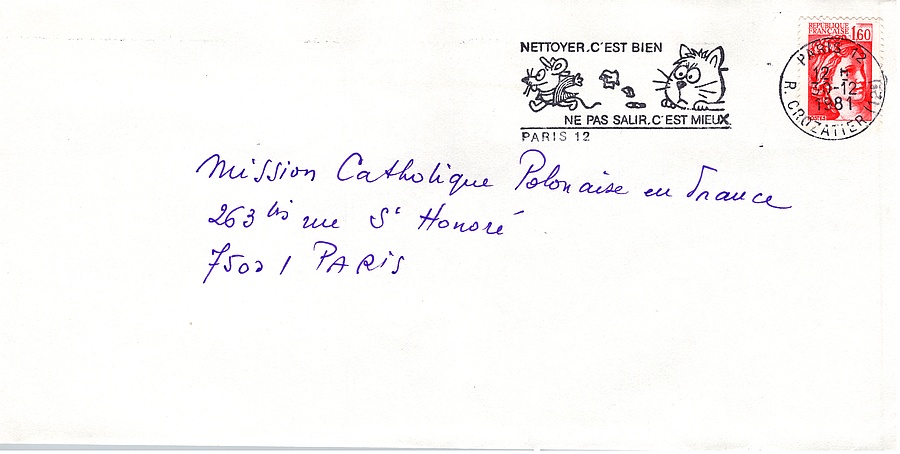 NETTOYER.C'EST BIEN
NE PAS SALIR.C'EST MIEUX
PARIS 12
RÉPUBLIQUE
FRANÇAISE
1,60
PARIS 12
12 H
-12
1981
R. CROZATIER (12E)
Mission Catholique Polonaise en France
263 bis rue St Honoré
75001 PARIS